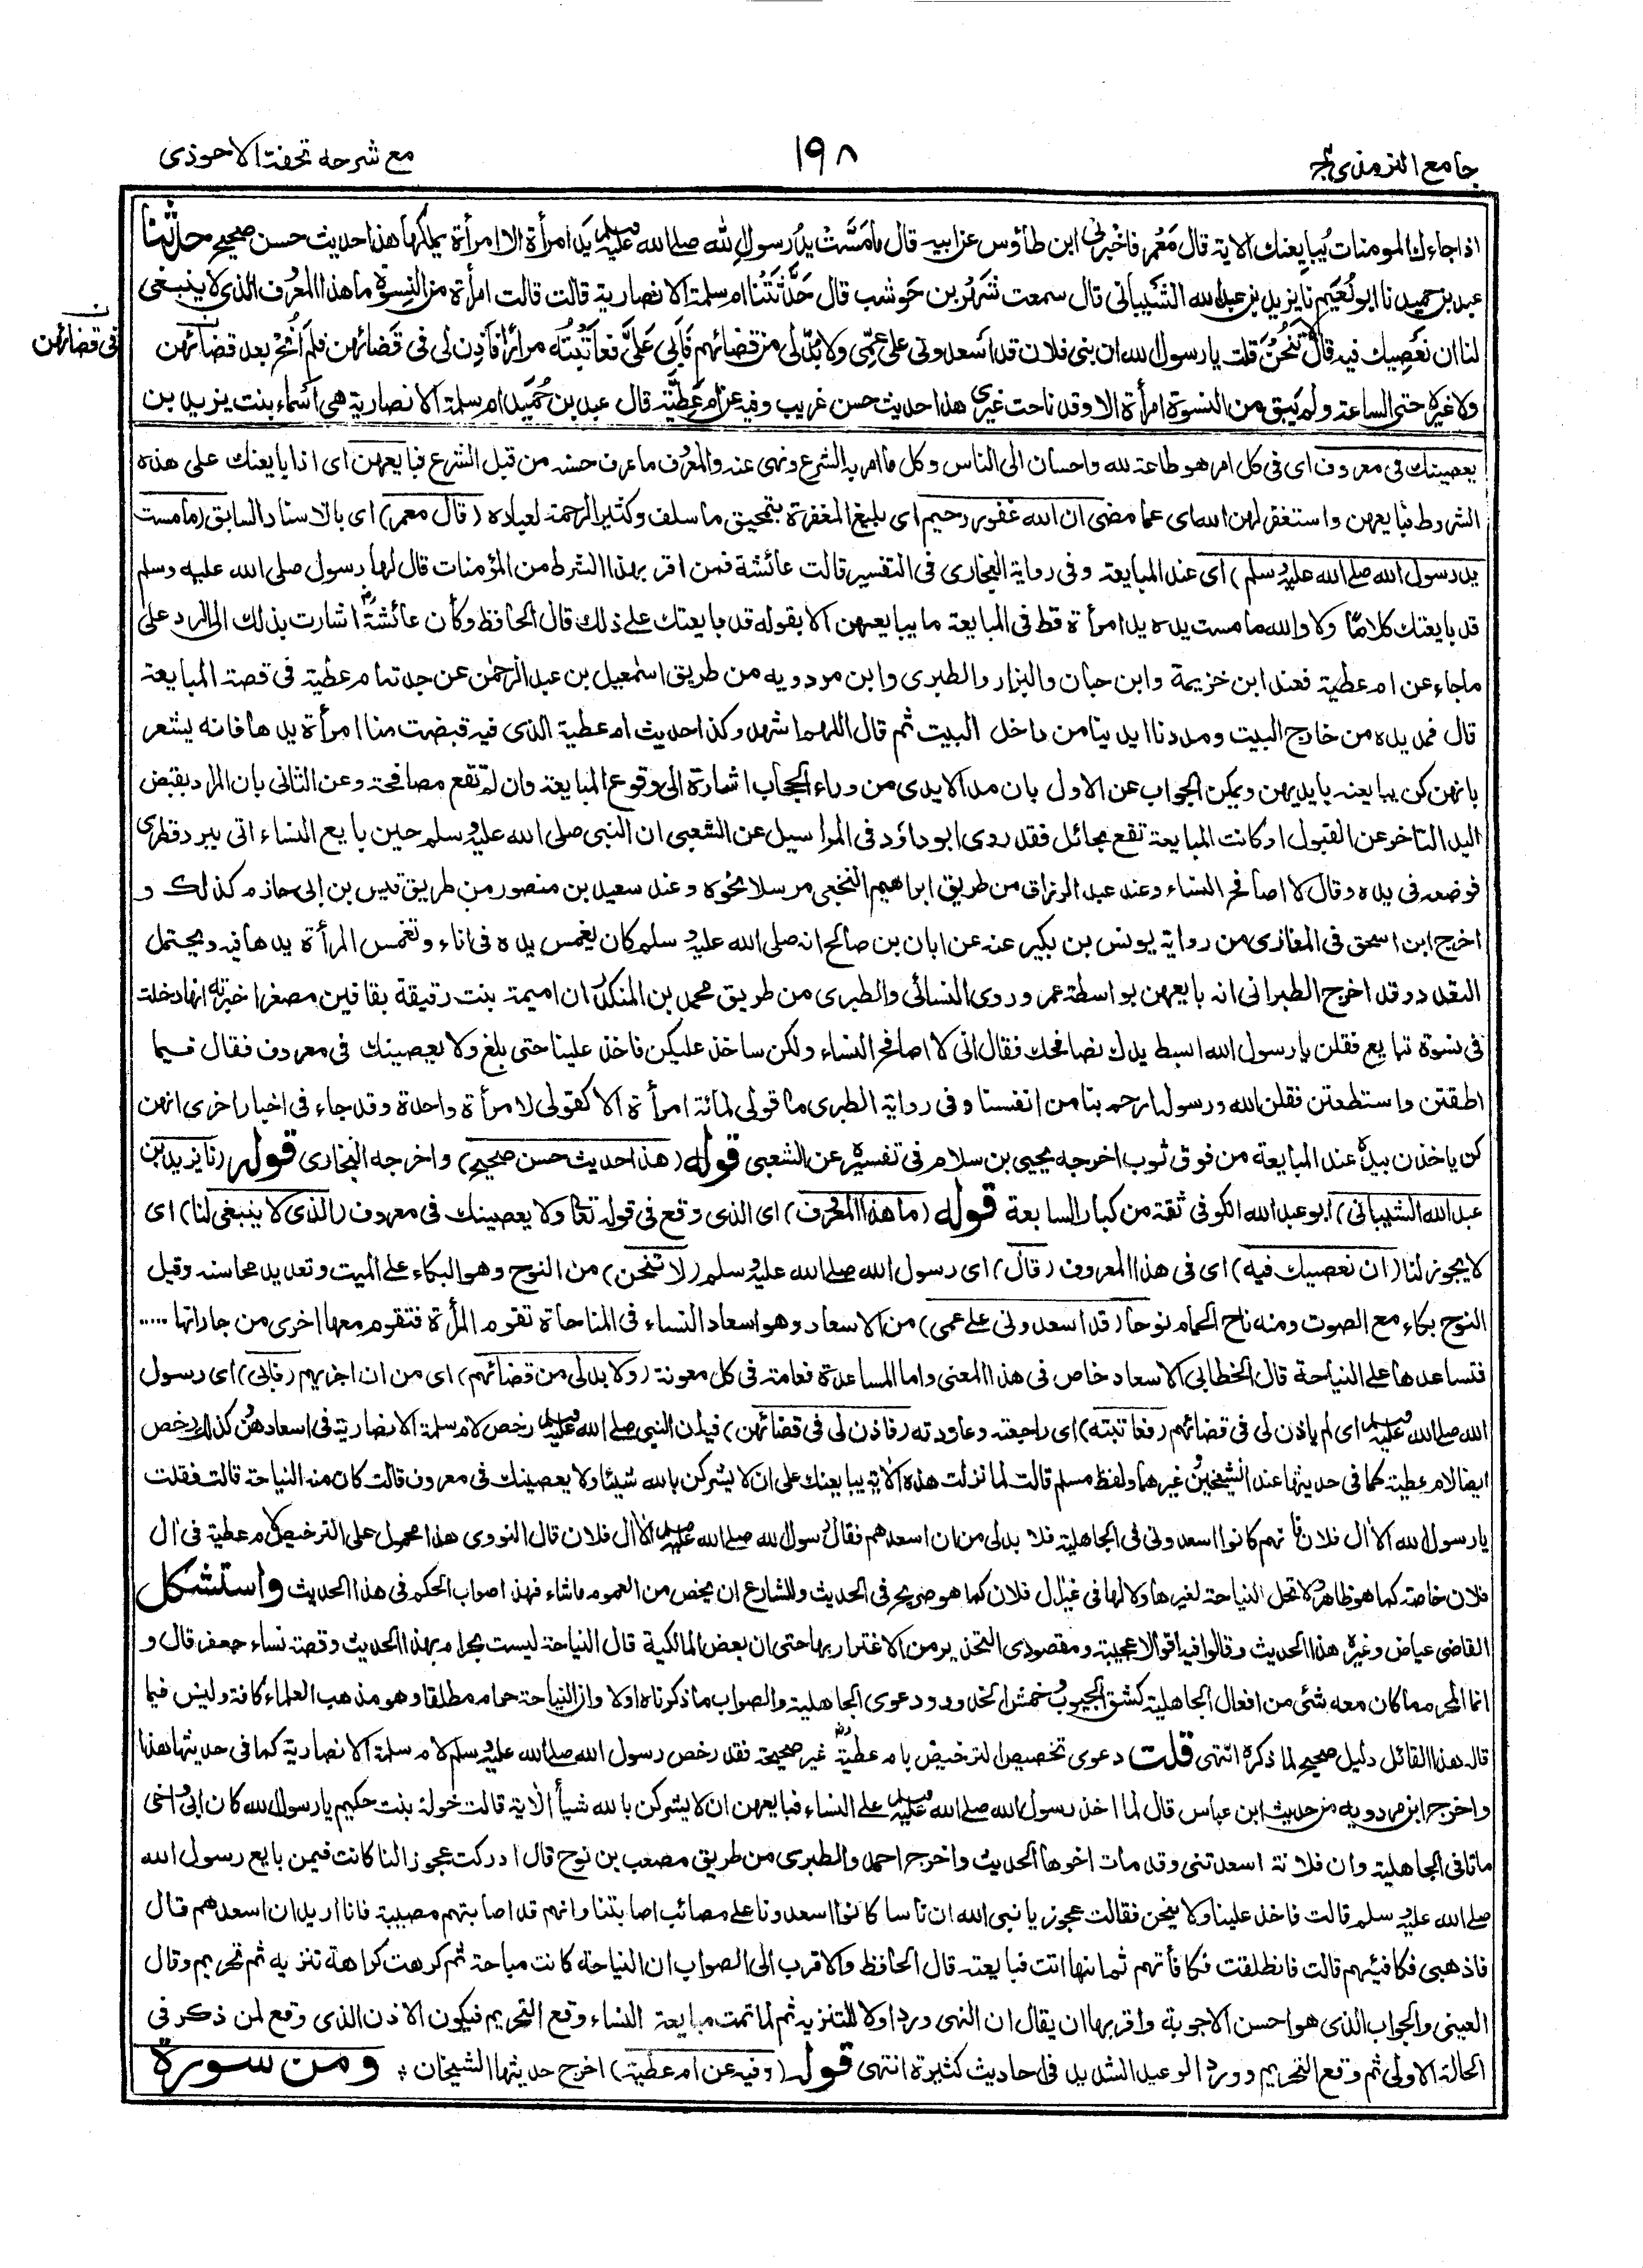 جامع الترمذى ج٤
١٩٨
مع شرحه تحفة الاحوذى
اذا جاءك المومنات يُبايعنك الاية قال مَعْمر فاخبرنى ابن طاؤس عن ابيه قال ما مَسَّتْ يدُ رسولِ الله صلى الله عليه وسلم يَد امرأة الا امرأة يملكها هذا حديث حسن صحيح حدثنا
عبد بن حميد نا ابو نُعَيم نا يزيد بن عبد الله الشَّيبانى قال سمعت شَهْرَ بن حَوشب قال حَدَّثَتْنَا ام سلمة الانصارية قالت قالت امرأة من النِسوة ما هذا المعرُوف الذى لا ينبغى
لنا ان نَعْصِيك فيه قال لا تَنُحْنَ قلت يا رسول الله ان بنى فلان قد اَسعدونى على عَمِّى ولا بُدَّ لى من قضائهم فَاَبى عَلَىَّ فعاتَبْتُه مرارًا فاَذِن لى فى قَضائهن فلم اَنُحْ بعد قضائهن
فى قضائهن
ولا غيرِه حتى الساعة ولم يَبق من النسوة امرأة الا وقد ناحت غيرى هذا حديث حسن غريب وفيه عن ام عَطِيَّة قال عبد بن حُمَيد ام سلمة الانصارية هى اَسْماء بنت يزيد بن
يعصينك فى معروف اى فى كل امر هو طاعة لله واحسان الى الناس وكل ما امر به الشرع ونهى عنه والمعرُوف ما عرف حسنه من قبل الشرع فبايعهن اى اذا بايعنك على هذه
الشروط فبايعهن واستغفر لهن الله اى عما مضى ان الله غفور رحيم اى بليغ المغفرة بتمحيق ما سلف وكثير الرحمة لعباده (قال معمر) اى بالاسناد السابق (ما مست
يد رسول الله صلى الله عليه وسلم) اى عند المبايعة وفى رواية البخارى فى التفسير قالت عائشة فمن اقر بهذا الشرط من المؤمنات قال لها رسول صلى الله عليه وسلم
قد بايعتك كلامًا ولا والله ما مست يده يد امرأة قط فى المبايعة ما يبايعهن الا بقوله قد بايعتك على ذلك قال الحافظ وكأن عائشة رض اشارت بذلك الى الرد على
ماجاء عن ام عطية فعند ابن خزيمة وابن حبان والبزار والطبرى وابن مردويه من طريق اسمعيل بن عبد الرحمٰن عن جدته ام عطية فى قصة المبايعة
قال فمد يده من خارج البيت ومددنا ايدينا من داخل البيت ثم قال اللهم اشهد وكذا حديث ام عطية الذى فيه قبضت منا امرأة يدها فانه يشعر
بانهن كن يبايعنه بايديهن ويمكن الجواب عن الاول بان مد الايدى من وراء الحجاب اشارة الى وقوع المبايعة وان لم تقع مصافحة وعن الثانى بان المراد بقبض
اليد التاخر عن القبول او كانت المبايعة تقع بحائل فقد روى ابو داؤد فى المراسيل عن الشعبى ان النبى صلى الله عليه وسلم حين بايع النساء اتى ببرد قطرى
فوضعه فى يده وقال لا اصافح النساء وعند عبد الرزاق من طريق ابراهيم النخعى مرسلا نحوه وعند سعيد بن منصور من طريق قيس بن ابى حازم كذلك و
اخرج ابن اسحق فى المغازى من رواية يونس بن بكير عنه عن ابان بن صالح انه صلى الله عليه وسلم كان يغمس يده فى اناء وتغمس المرأة يدها فيه ويحتمل
التعدد وقد اخرج الطبرانى انه بايعهن بواسطة عمر وروى النسائى والطبرى من طريق محمد بن المنكدر ان اميمة بنت رقيقة بقافين مصغرا اخبرته انها دخلت
فى نسوة تبايع فقلن يا رسول الله ابسط يدك نصافحك فقال انى لا اصافح النساء ولكن ساخذ عليكن فاخذ علينا حتى بلغ ولا يعصينك فى معروف فقال فيما
اطقتن واستطعتن فقلن الله ورسوله ارحم بنا من انفسنا وفى رواية الطبرى ما قولى لمائة امرأة الا كقولى لامرأة واحدة وقد جاء فى اخبار اخرى انهن
كن ياخذن بيده عند المبايعة من فوق ثوب اخرجه يحيى بن سلام فى تفسيره عن الشعبى قوله (هذا حديث حسن صحيح) واخرجه البخارى قوله (نا يزيد بن
عبد الله الشيبانى) ابو عبد الله الكوفى ثقة من كبار السابعة قوله (ما هذا المعروف) اى الذى وقع فى قوله تعالى ولا يعصينك فى معروف (الذى لا ينبغى لنا) اى
لا يجوز لنا (ان نعصيك فيه) اى فى هذا المعروف (قال) اى رسول الله صلى الله عليه وسلم (لا تنحن) من النوح وهو البكاء على الميت وتعديد محاسنه وقيل
النوح بكاء مع الصوت ومنه ناح الحمام نوحا (قد اسعدونى على عمى) من الاسعاد وهو اسعاد النساء فى المناحاة تقوم المرأة فتقوم معها اخرى من جاراتها .....
فتساعدها على النياحة قال الخطابى الاسعاد خاص فى هذا المعنى واما المساعدة فعامة فى كل معونة (ولا بد لى من قضائهم) اى من ان اجزيهم (فابى) اى رسول
الله صلى الله عليه وسلم اى لم ياذن لى فى قضائهم (فعاتبته) اى راجعته وعاودته (فاذن لى فى قضائهن) فيه ان النبى صلى الله عليه وسلم رخص لام سلمة الانصارية فى اسعادهن وكذلك رخص
ايضا لام عطية كما فى حديثها عند الشيخين وغيرهما ولفظ مسلم قالت لما نزلت هذه الاٰية يبايعنك على ان لا يشركن بالله شيئا ولا يعصينك فى معروف قالت كان منه النياحة قالت فقلت
يا رسول الله الا اٰل فلان فانهم كانوا اسعدونى فى الجاهلية فلا بد لى من ان اسعدهم فقال رسول الله صلى الله عليه وسلم الا اٰل فلان قال النووى هذا محمول على الترخيص لام عطية فى اٰل
فلان خاصة كما هو ظاهره لا تحل النياحة لغيرها ولا لها فى غير اٰل فلان كما هو صريح فى الحديث وللشارع ان يخص من العموم ما شاء فهذا صواب الحكم فى هذا الحديث واستشكل
القاضى عياض وغيره هذا الحديث وقالوا فيه اقوالا عجيبة ومقصودى التحذير من الاغترار بها حتى ان بعض المالكية قال النياحة ليست بحرام بهذا الحديث وقصة نساء جعفر قال و
انما المحرم ما كان معه شئ من افعال الجاهلية كشق الجيوب وخمش الخدود ودعوى الجاهلية والصواب ما ذكرناه اولا وان النياحة حرام مطلقا وهو مذهب العلماء كافة وليس فيما
قاله هذا القائل دليل صحيح لما ذكره انتهى قلت دعوى تخصيص الترخيص بام عطية رض غير صحيحة فقد رخص رسول الله صلى الله عليه وسلم لام سلمة الانصارية كما فى حديثها هذا
واخرج ابن مردويه من حديث ابن عباس قال لما اخذ رسول الله صلى الله عليه وسلم على النساء فبايعهن ان لا يشركن بالله شيأ الاٰية قالت خولة بنت حكيم يا رسول الله كان ابى واخى
ماتا فى الجاهلية وان فلانة اسعدتنى وقد مات اخوها الحديث واخرج احمد والطبرى من طريق مصعب بن نوح قال ادركت عجوزا لنا كانت فيمن بايع رسول الله
صلى الله عليه وسلم قالت فاخذ علينا ولا ينحن فقالت عجوز يا نبى الله ان ناسا كانوا اسعدونا على مصائب اصابتنا وانهم قد اصابتهم مصيبة فانا اريد ان اسعدهم قال
فاذهبى فكافئيهم قالت فانطلقت فكافأتهم ثم انها اتت فبايعته قال الحافظ والاقرب الى الصواب ان النياحة كانت مباحة ثم كرهت كراهة تنزيه ثم تحريم وقال
العينى والجواب الذى هو احسن الاجوبة واقربها ان يقال ان النهى ورد اولا للتنزيه ثم لما تمت مبايعة النساء وقع التحريم فيكون الاذن الذى وقع لمن ذكر فى
الحالة الاولى ثم وقع التحريم وورد الوعيد الشديد فى احاديث كثيرة انتهى قوله (وفيه عن ام عطية) اخرج حديثها الشيخان ؞ ومن سورة